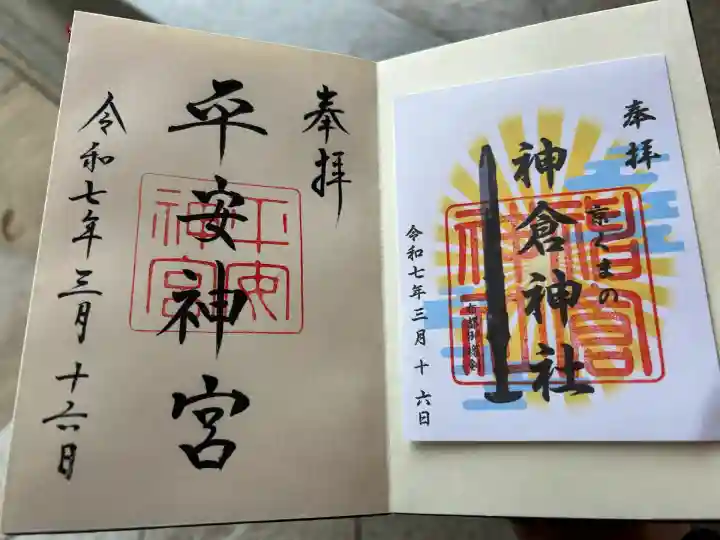 奉拝
平安神宮
平安神宮
令和七年三月十六日
奉拝
京くまの
神倉神社
神倉神社
令和七年三月十六日